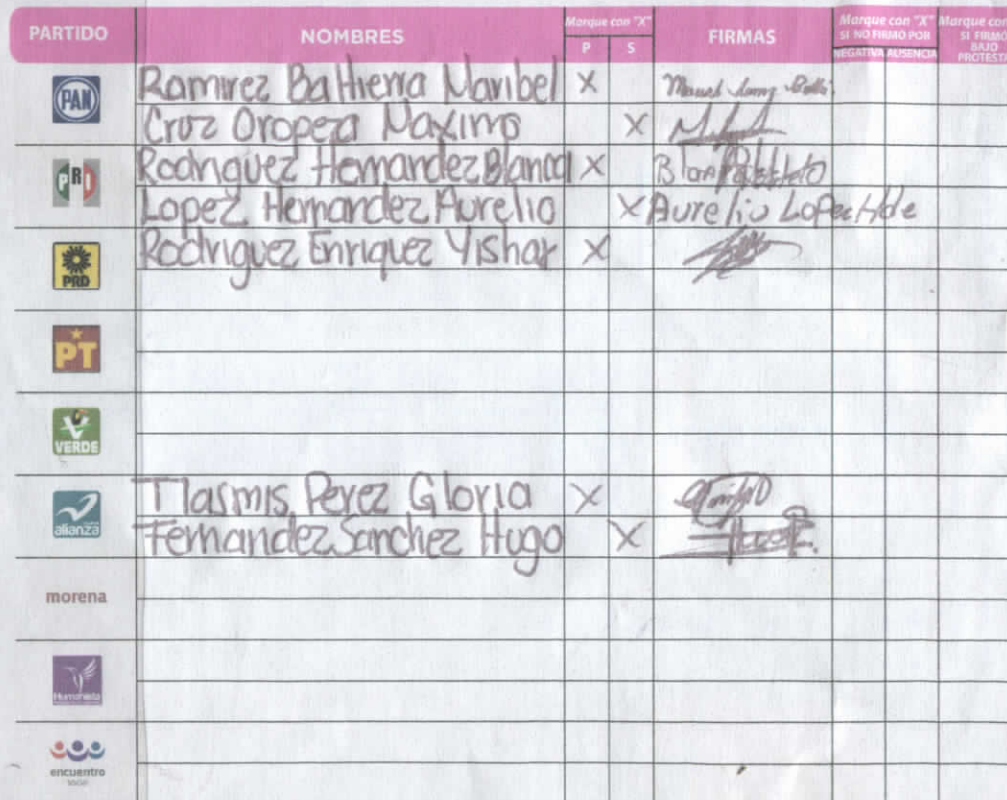 PARTIDO NOMBRES Marque con "X" P S FIRMAS Marque con "X" SI NO FIRMÓ POR NEGATIVA AUSENCIA Marque con SI FIRMÓ BAJO PROTESTA
PAN Ramirez Baltierra Maribel X
Cruz Oropeza Maximo X
PRI Rodriguez Hernandez Blanca X
Lopez Hernandez Aurelio X Aurelio Lopez Hde
PRD Rodriguez Enriquez Yishar X
PT
VERDE
alianza Tlasmis Perez Gloria X
Fernandez Sanchez Hugo X
morena
Humanista
encuentro
social